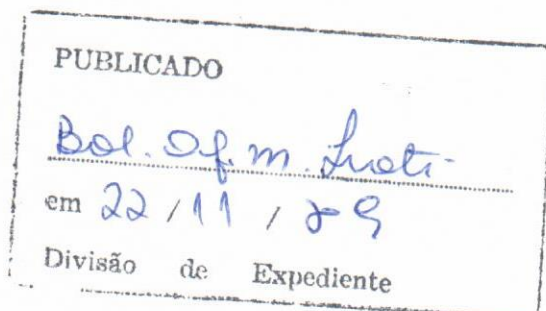 PUBLICADO
Bol. Of. m.
em 22 / 11 / 89
Divisão de Expediente